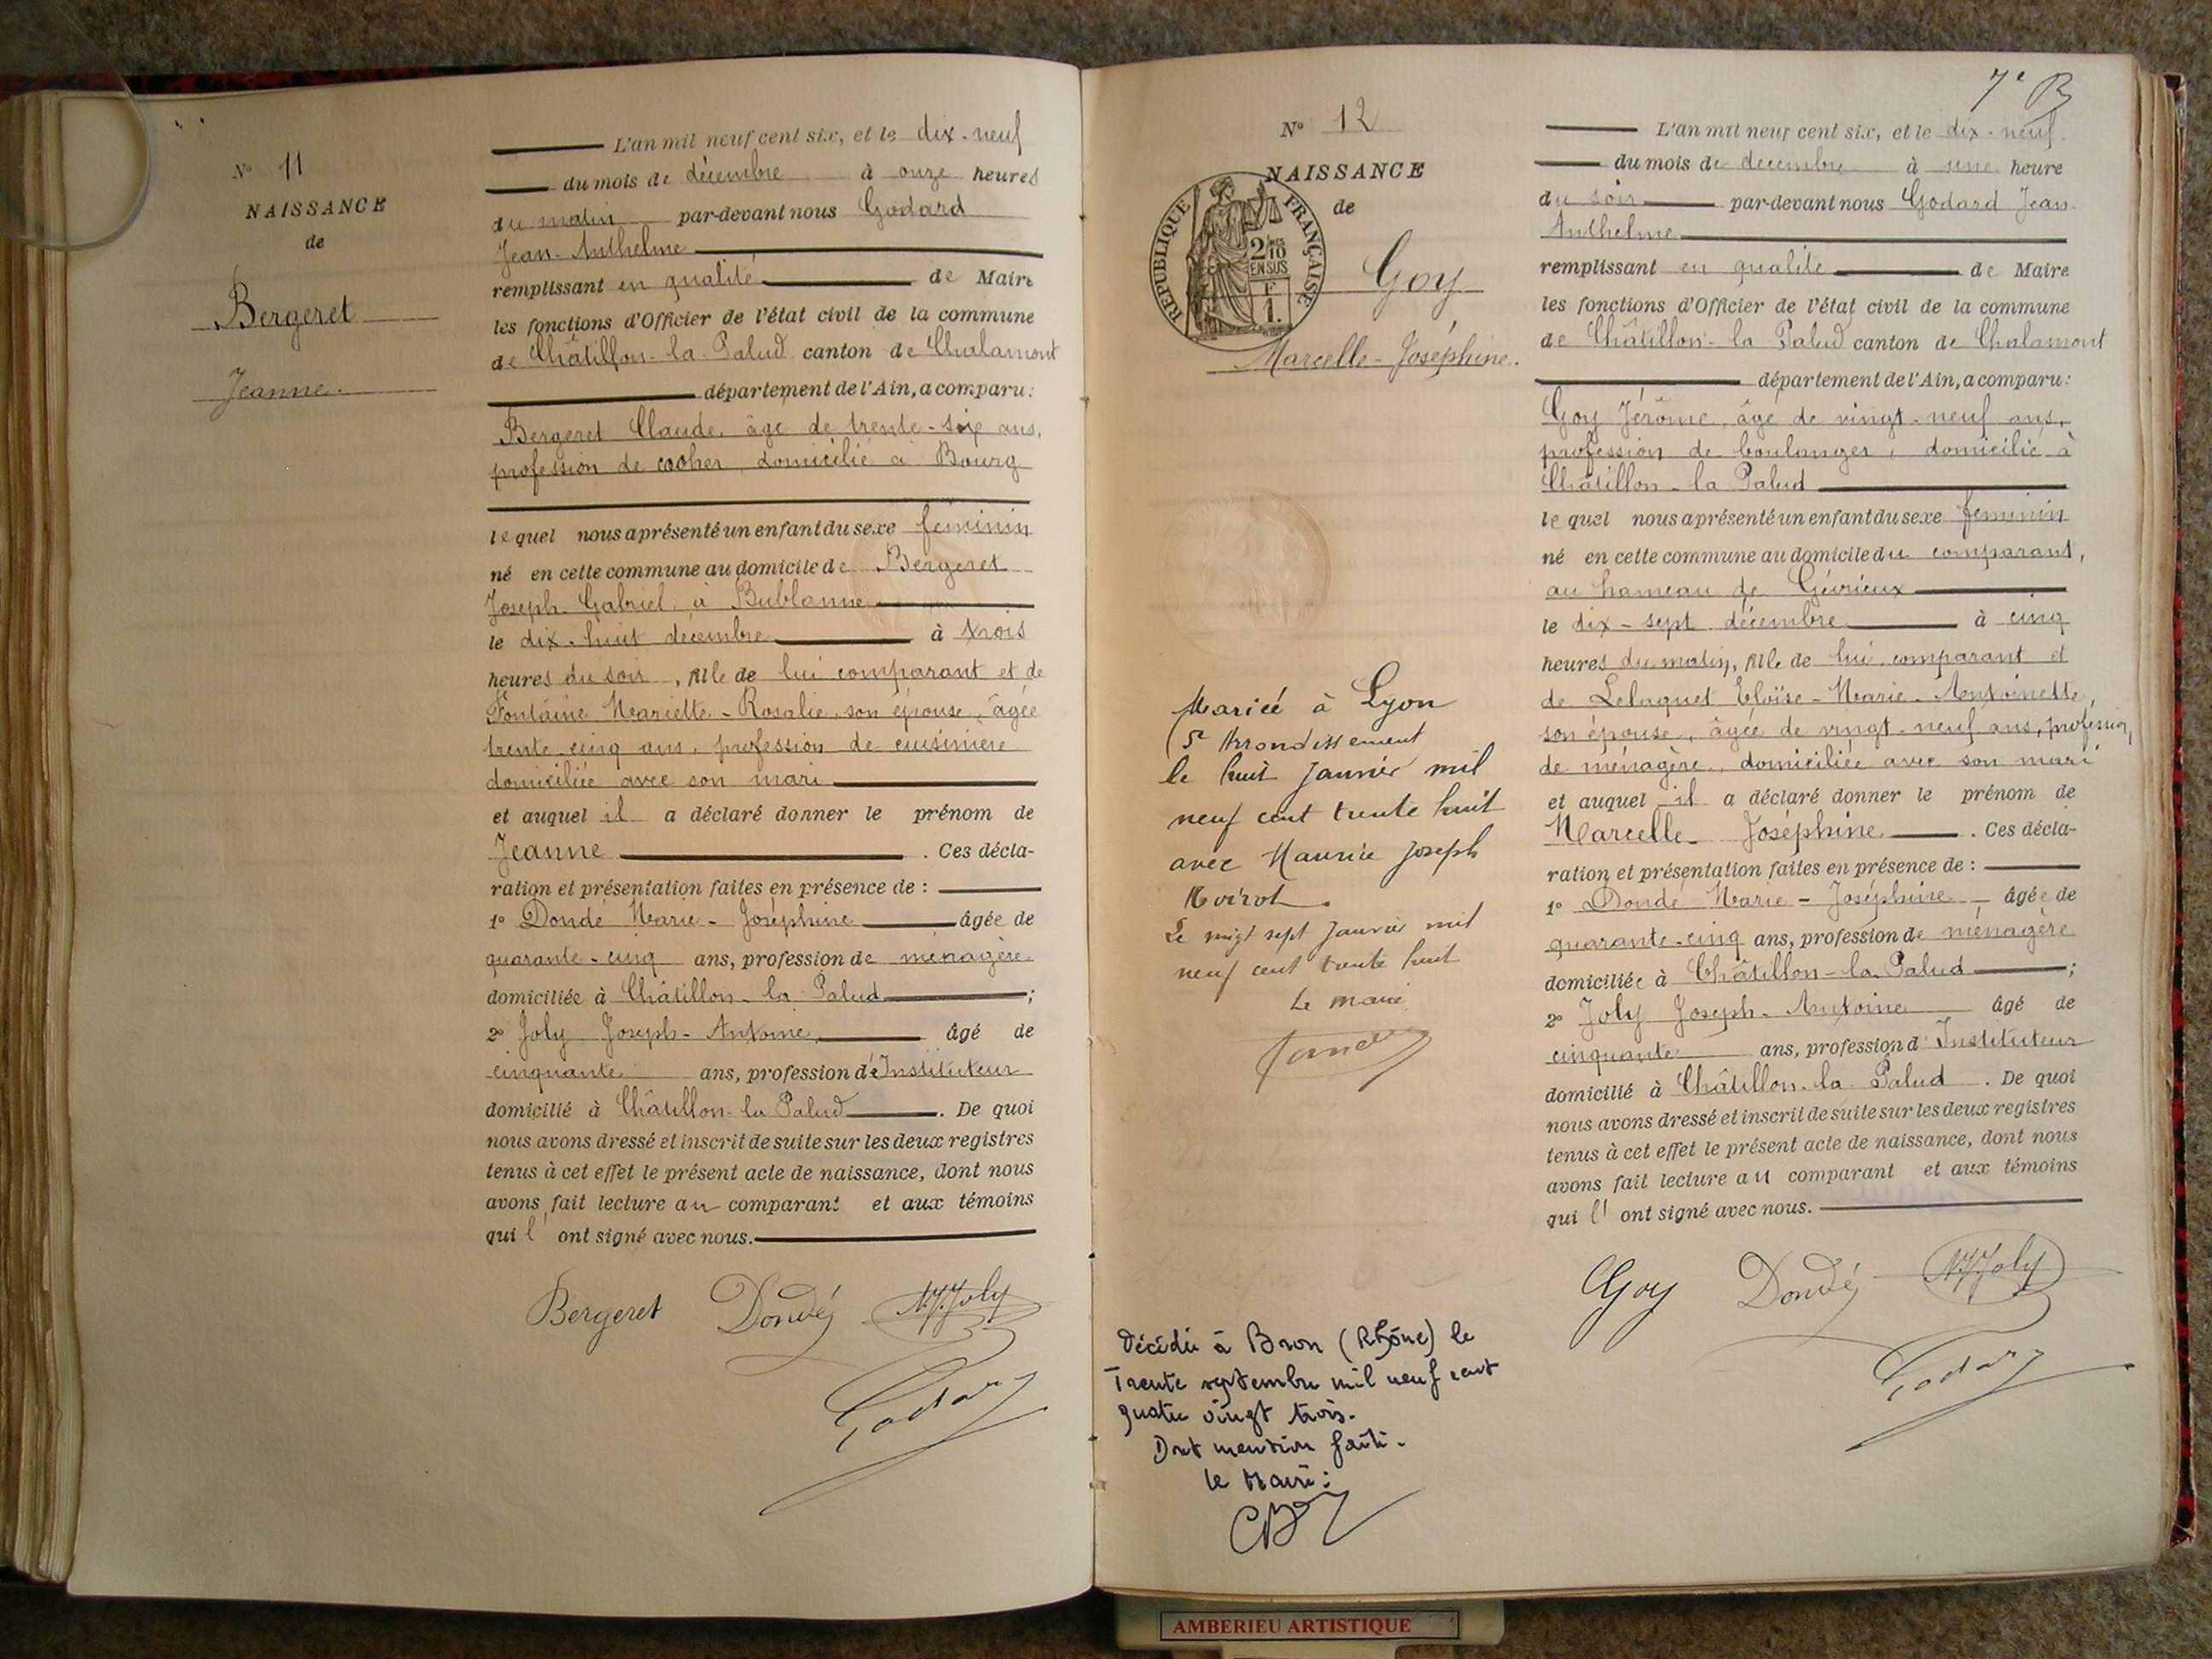 N° 11
NAISSANCE
de
Bergeret
Jeanne.
L'an mil neuf cent six, et le dix-neuf
du mois de décembre à onze heures
du matin par-devant nous Godard
Jean-Anthelme
remplissant en qualité de Maire
les fonctions d'Officier de l'état civil de la commune
de Châtillon-la-Palud canton de Chalamont
département de l'Ain, a comparu:
Bergeret Claude, âgé de trente-six ans,
profession de cocher, domicilié à Bourg
le quel nous a présenté un enfant du sexe féminin
né en cette commune au domicile de Bergeret
Joseph Gabriel, à Bublanne
le dix-huit décembre à trois
heures du soir, fille de lui comparant et de
Fontaine Mariette-Rosalie, son épouse, âgée
trente-cinq ans, profession de cuisinière
domiciliée avec son mari
et auquel il a déclaré donner le prénom de
Jeanne. Ces décla-
ration et présentation faites en présence de:
1° Dondé Marie-Joséphine âgée de
quarante-cinq ans, profession de ménagère
domiciliée à Châtillon-la-Palud;
2° Joly Joseph-Antoine, âgé de
cinquante ans, profession d'Instituteur
domicilié à Châtillon-la-Palud. De quoi
nous avons dressé et inscrit de suite sur les deux registres
tenus à cet effet le présent acte de naissance, dont nous
avons fait lecture au comparant et aux témoins
qui l'ont signé avec nous.
Bergeret Dondé Joly
Godard
7e B
N° 12
NAISSANCE
de
REPUBLIQUE FRANÇAISE
2/10
EN SUS
F
1.
Goy
Marcelle-Joséphine.
Mariée à Lyon
5e Arrondissement
le huit Janvier mil
neuf cent trente huit
avec Maurice Joseph
Noirot.
Le vingt sept Janvier mil
neuf cent trente huit
Le maire
Décédée à Bron (Rhône) le
Trente septembre mil neuf cent
quatre vingt trois.
Dont mention faite.
le Maire:
L'an mil neuf cent six, et le dix-neuf
du mois de décembre à une heure
du soir par-devant nous Godard Jean
Anthelme
remplissant en qualité de Maire
les fonctions d'Officier de l'état civil de la commune
de Châtillon-la Palud canton de Chalamont
département de l'Ain, a comparu:
Goy Jérôme, âgé de vingt-neuf ans,
profession de boulanger, domicilié à
Châtillon-la Palud
le quel nous a présenté un enfant du sexe féminin
né en cette commune au domicile du comparant,
au hameau de Gévrieux
le dix-sept décembre à cinq
heures du matin, fille de lui comparant et
de Lelaquet Eloïse-Marie-Antoinette,
son épouse, âgée de vingt-neuf ans, profession
de ménagère, domiciliée avec son mari
et auquel il a déclaré donner le prénom de
Marcelle-Joséphine. Ces décla-
ration et présentation faites en présence de:
1° Dondé Marie-Joséphine âgée de
quarante-cinq ans, profession de ménagère
domiciliée à Châtillon-la Palud;
2° Joly Joseph-Antoine âgé de
cinquante ans, profession d'Instituteur
domicilié à Châtillon-la Palud. De quoi
nous avons dressé et inscrit de suite sur les deux registres
tenus à cet effet le présent acte de naissance, dont nous
avons fait lecture au comparant et aux témoins
qui l'ont signé avec nous.
Goy Dondé Joly
Godard
AMBERIEU ARTISTIQUE